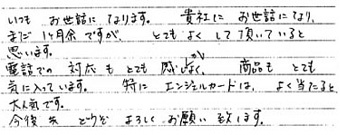 いつも お世話に なります。 貴社に お世話になり、
まだ 1ヶ月余 ですが、 とても よく して 頂いていると
思います。
電話での 対応 も とても 感じよく、 商品も とても
気に入っています。 特に エンジェルカードは、よく当たると
大人気です。
今後 共 どうぞ よろしく お願い 致します。